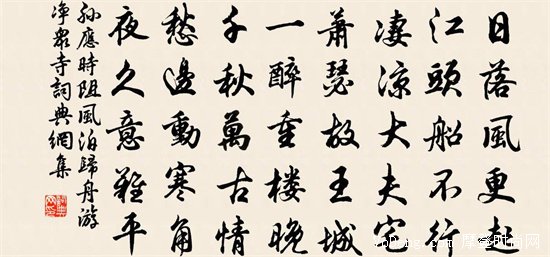 日落風更起
江頭船不行
凄涼大夫宅
蕭瑟故王城
一醉重樓晚
千秋萬古情
愁邊動寒角
夜久意難平
孫應時阻風泊歸舟游
净眾寺詞典網集